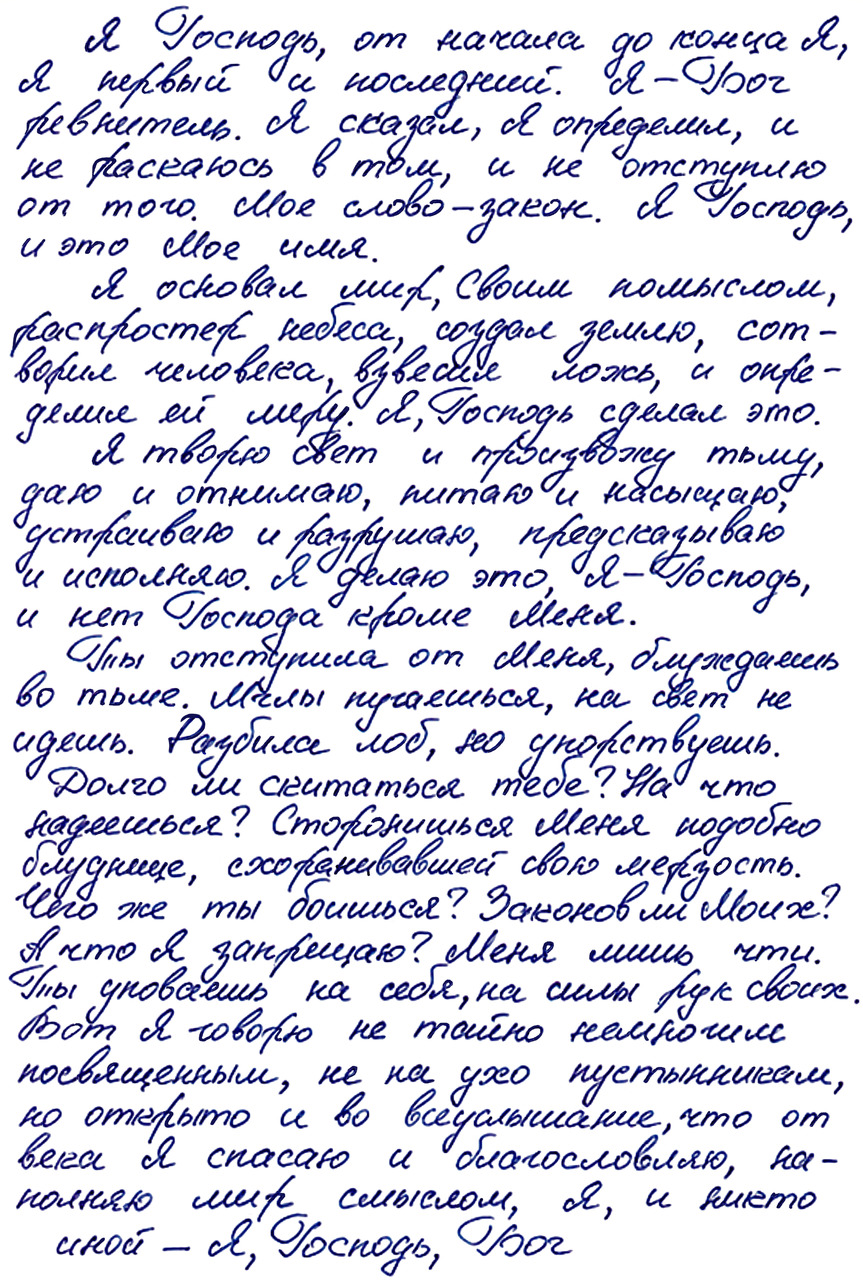 Я Господь, от начала до конца Я,
Я первый и последний. Я – Бог
ревнитель. Я сказал, Я определил, и
не раскаюсь в том, и не отступлю
от того. Мое слово – закон. Я Господь,
и это Мое имя.
Я основал мир, Своим помыслом,
распростер небеса, создал землю, сот-
ворил человека, взвесил ложь, и опре-
делил ей меру. Я, Господь сделал это.
Я творю свет и произвожу тьму,
даю и отнимаю, питаю и насыщаю,
устраиваю и разрушаю, предсказываю
и исполняю. Я делаю это, Я – Господь,
и нет Господа кроме Меня.
Ты отступила от Меня, блуждаешь
во тьме. Мглы пугаешься, на свет не
идешь. Разбила лоб, но упорствуешь.
Долго ли скитаться тебе? На что
надеешься? Сторонишься Меня подобно
блуднице, схоранивавшей свою мерзость.
Чего же ты боишься? Законов ли Моих?
А что Я запрещаю? Меня лишь чти.
Ты уповаешь на себя, на силы рук своих.
Вот Я говорю не тайно немногим
посвященным, не на ухо пустынникам,
но открыто и во всеуслышание, что от
века Я спасаю и благословляю, на-
полняю мир смыслом, Я, и никто
иной – Я, Господь, Бог